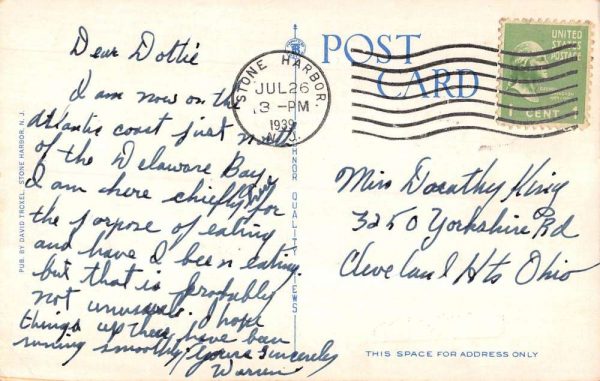 Dear Dottie
I am now on the
Atlantic coast just north
of the Delaware Bay.
I am here chiefly for
the porpose of eating
and have I been eating.
but that is probably
not unusual. I hope
things up there have been
running smoothly. Yours Sincerely
Warren
PUB. BY DAVID TROXEL, STONE HARBOR, N. J.
POST CARD
STONE HARBOR
JUL 26
3-PM
1939
N.J.
UNITED
STATES
POSTAGE
1 CENT
Miss Dorathy King
3250 Yorkshire Rd
Cleveland Hts Ohio
THIS SPACE FOR ADDRESS ONLY